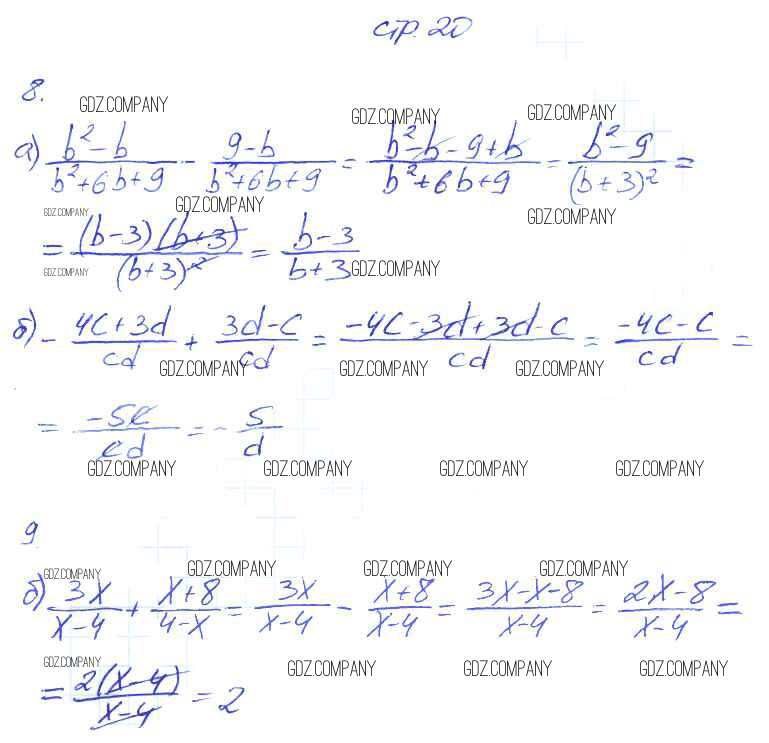 стр. 20
8.
GDZ.COMPANY GDZ.COMPANY GDZ.COMPANY
а) (b²-b)/(b²+6b+9) - (9-b)/(b²+6b+9) = (b²-b-9+b)/(b²+6b+9) = (b²-9)/(b+3)² =
GDZ.COMPANY GDZ.COMPANY GDZ.COMPANY
= (b-3)(b+3)/(b+3)² = (b-3)/(b+3)
GDZ.COMPANY GDZ.COMPANY
б) - (4c+3d)/(cd) + (3d-c)/(cd) = (-4c-3d+3d-c)/(cd) = (-4c-c)/(cd) =
GDZ.COMPANY GDZ.COMPANY GDZ.COMPANY
= (-5c)/(cd) = - 5/d
GDZ.COMPANY GDZ.COMPANY GDZ.COMPANY GDZ.COMPANY
9.
GDZ.COMPANY GDZ.COMPANY GDZ.COMPANY GDZ.COMPANY
б) 3x/(x-4) + (x+8)/(4-x) = 3x/(x-4) - (x+8)/(x-4) = (3x-x-8)/(x-4) = (2x-8)/(x-4) =
GDZ.COMPANY GDZ.COMPANY GDZ.COMPANY GDZ.COMPANY
= 2(x-4)/(x-4) = 2